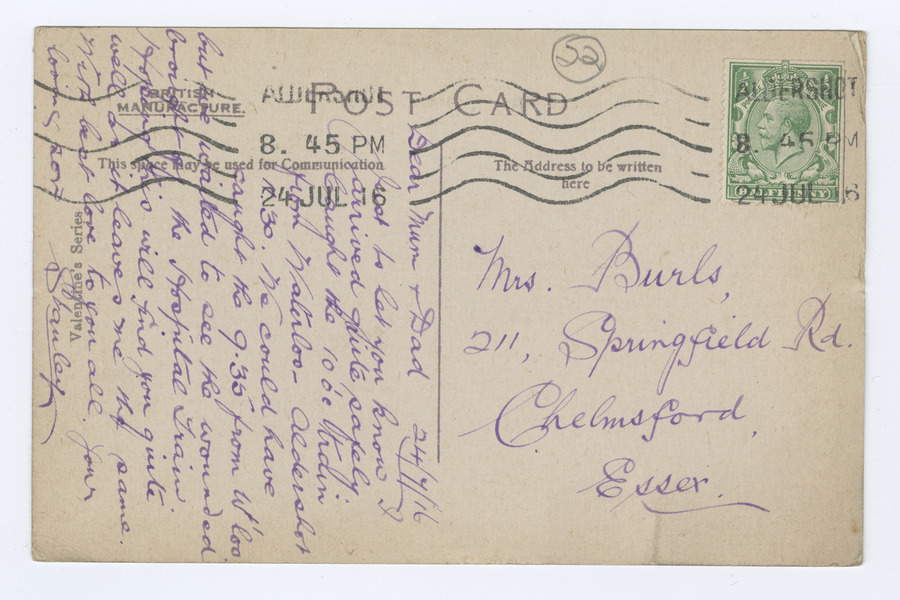 52
POST CARD
BRITISH
MANUFACTURE.
ALDERSHOT
8. 45 PM
24 JUL 16
This space may be used for Communication
The Address to be written
here
Valentine's Series
ALDERSHOT
8. 45 PM
24 JUL 16
HALFPENNY
Dear Mum & Dad 24/7/16
Just to let you know I
arrived quite safely
Caught the 10 o'c
from Waterloo – Aldershot
We could have
caught the 9.35 from W'loo
but we waited to see the wounded
the Hospital Train
Hoping this will find you quite
well as it leaves me the same.
With best love to you all. Your
loving son
Stanley
Mrs. Burls,
211, Springfield Rd.
Chelmsford,
Essex.